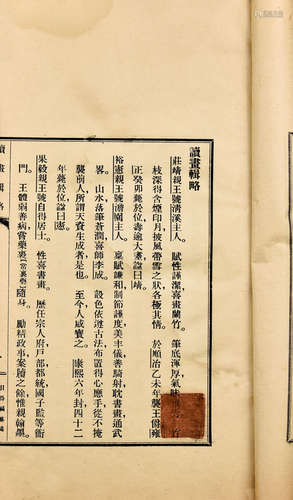 讀畫輯略
莊靖親王號清溪主人。賦性謹潔喜畫蘭竹。筆底渾厚氣味
枝深得含煙印月披風帶雪之狀各極其情。於順治乙未年襲王爵雍
正癸卯薨於位壽逾大耋諡曰靖。
裕憲親王號澹園主人。稟賦謙和制節謹度美丰儀善騎射耽書畫通武
畧。山水落筆蒼潤喜師李成。設色依遵古法布置得心應手從不掩
襲前人所謂天資生成者是也。至今人咸寶之。康熙六年封四十二
年薨於位諡曰憲。
果毅親王號自得居士。性喜書畫。歷任宗人府戶部都統國子監等衙
門。王體弱善病嘗藥裹(常裹藥)隨身。勵精政事案牘之餘惟親翰
讀畫輯略